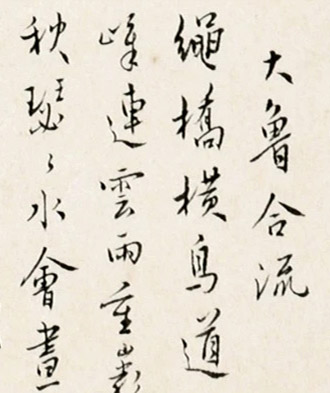 大魯合流
繩橋橫鳥道
峰連雲雨重巖
秋瑟〻水會晝